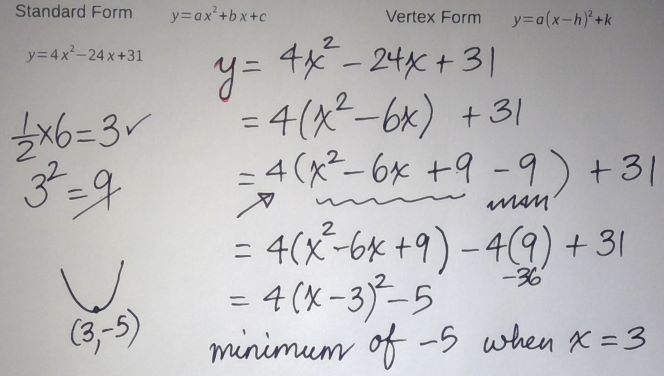 Standard Form y=ax²+bx+c Vertex Form y=a(x−h)²+k
y=4x²−24x+31
y= 4x²−24x+31
= 4(x²−6x) +31
½×6=3✓
= 4(x²−6x+9 −9) +31
3²=9
= 4(x²−6x+9) −4(9) +31
−36
= 4(x−3)²−5
(3,−5)
minimum of −5 when x=3